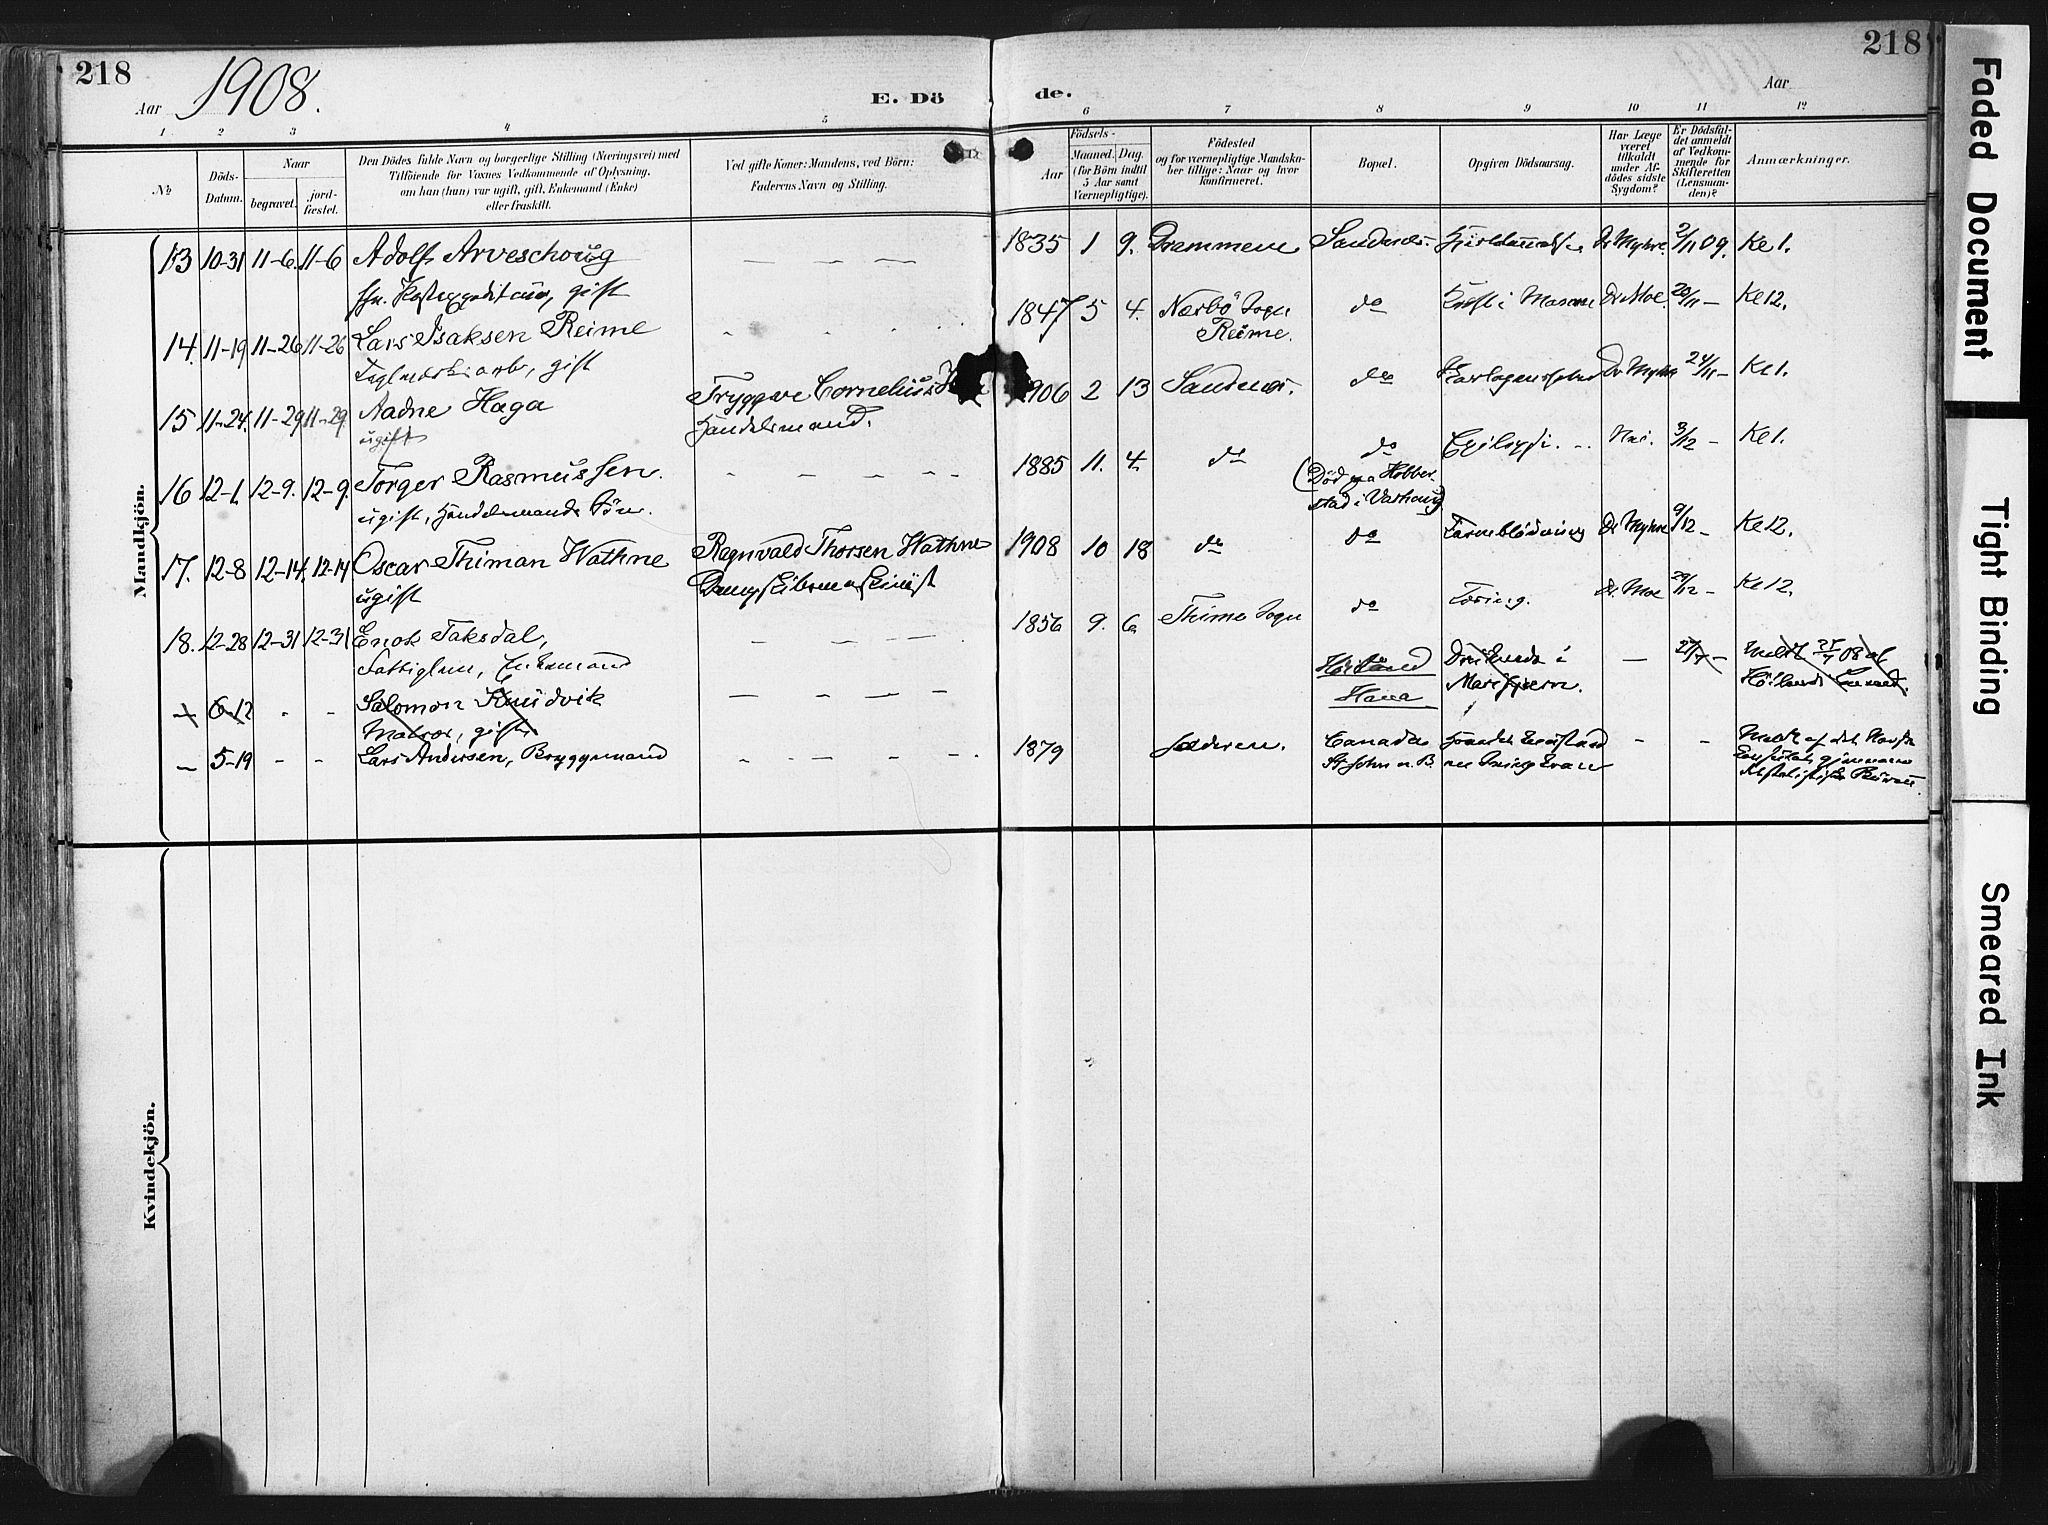 218
Aar 1908.
E. Dö de.
Aar
218
1 2 3 4 5 6 7 8 9 10 11 12
№
Döds-
Datum.
Naar
begravet.
jord-
fæstet.
Den Dödes fulde Navn og borgerlige Stilling (Næringsvei) med
Tilföiende for Voxnes Vedkommende af Oplysning,
om han (hun) var ugift, gift, Enkemand (Enke)
eller fraskilt.
Ved gifte Koner: Mandens, ved Börn:
Faderens Navn og Stilling.
Födsels-
Aar
Maaned. Dag.
(for Börn indtil
5 Aar samt
Værnepligtige).
Födested
og for værnepligtige Mandska-
ber tillige: Naar og hvor
konfirmeret.
Bopæl.
Opgiven Dödsaarsag.
Har Læge
været
tilkaldt
under Af-
dödes sidste
Sygdom?
Er Dödsfal-
det anmeldt
af Vedkom-
mende for
Skifteretten
(Lensman-
den)?
Anmærkninger.
Mandkjön.
13 10-31 11-6. 11-6 Adolf Arveschoug 1835 1 9. Drammen Sandnes. Dr Myhre. 2/11 09. Kl 1.
fhv. Postexpeditør, gift
14. 11-19 11-26 11-26 Lars Isaksen Reime 1847 5 4. Nærbö Sogn do Kræft i Maven Dr Moe. 20/11 - Kl 2.
Teglverksarb, gift Reime.
15 11-24. 11-29 11-29. Aadne Haga Tryggve Cornelius 1906 2 13 Sandnes. do Dr Myhre 24/11 - Kl 1.
ugift Handelsmand.
16 12-1. 12-9. 12-9. Torger Rasmussen. 1885 11. 4. do do Epilepsi. Nei. 3/12 - Kl 1.
ugift, Handelsmands Sön. (Död paa Hobber-
stad i Varhaug)
17. 12-8 12-14. 12-14 Oscar Thiman Wathne Ragnvald Thorsen Wathne 1908 10 18 do do Tarmblödning Dr Myhre 9/12 - Kl 2.
ugift Dampskibsmaskinist
18. 12-28 12-31 12-31 Enok Taksdal, 1856 9. 6. Thime Sogn do Tæring. Dr. Moe 29/12 - Kl 2.
Fattiglem, Enkemand
6-12 Salomon Knudvik Höiland Druknede i 27/7 - Meldt 25/7 08 af
Matros, gift Hana Marifjæren. Höilands
5-19 Lars Andersen, Bryggemand 1879 Jæderen. Canada
St John n. B. Meldt af det Norske
Konsulat gjennem
Statistiske Bureau.
Kvindekjön.
Faded Document
Tight Binding
Smeared Ink